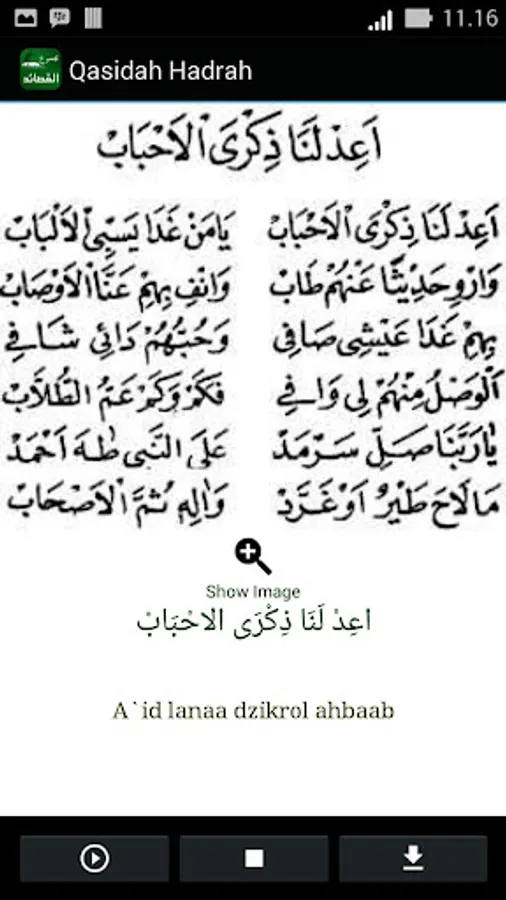 11.16
Qasidah Hadrah
اَعِدْ لَنَا ذِكْرَى الْاَحْبَابْ
اَعِدْ لَنَا ذِكْرَى الْاَحْبَابْ يَامَنْ غَدَا يَسْبِى الْاَلْبَابْ
وَارْوِ حَدِيْثًا عَنْهُمْ طَابْ وَانْفِ بِهِمْ عَنَّا الْاَوْصَابْ
بِهِمْ غَدَا عَيْشِى صَافِى وَحُبُّهُمْ دَائِى شَافِى
اَلْوَصْلُ مِنْهُمْ لِى وَافِى فَكَمْ وَكَمْ عَمُّ الطُّلَّابْ
يَارَبَّنَا صَلِّ سَرْمَدْ عَلَى النَّبِى طٰهَ اَحْمَدْ
مَالَاحَ طَيْرٌ اَوْ غَرَّدْ وَاٰلِهِ ثُمَّ الْاَصْحَابْ
Show Image
اعِدْ لَنَا ذِكْرَى الاحْبَابْ
A`id lanaa dzikrol ahbaab